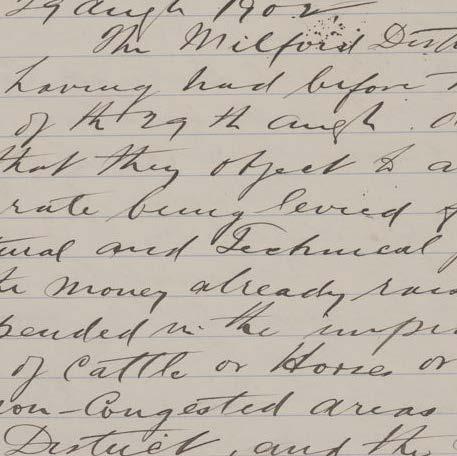 29 augh 1902
The Milford Dist
having had before
of th 29 th augh.
that they object to a
rate being levied
tural and Technical
money already rais
pended in the impr
of Cattle or Horses or
non-Congested areas
District, and the